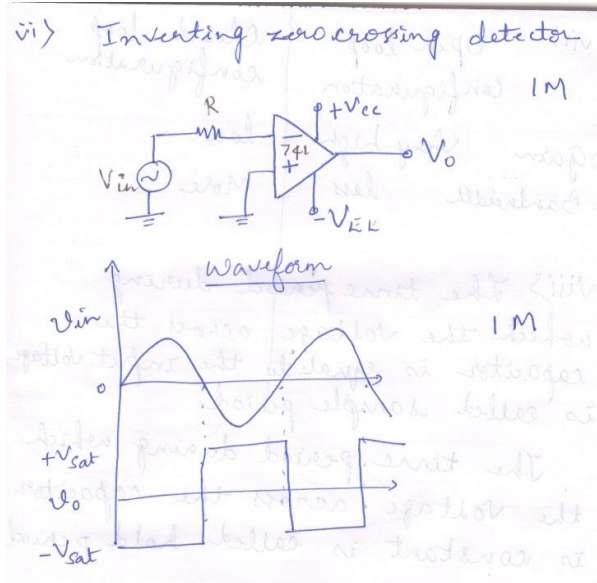 vi> Inverting zero crossing detector-
1M
R
+Vcc
-
741
+
Vo
Vin
-VEE
Waveform
Vin
1M
0
+Vsat
Vo
-Vsat